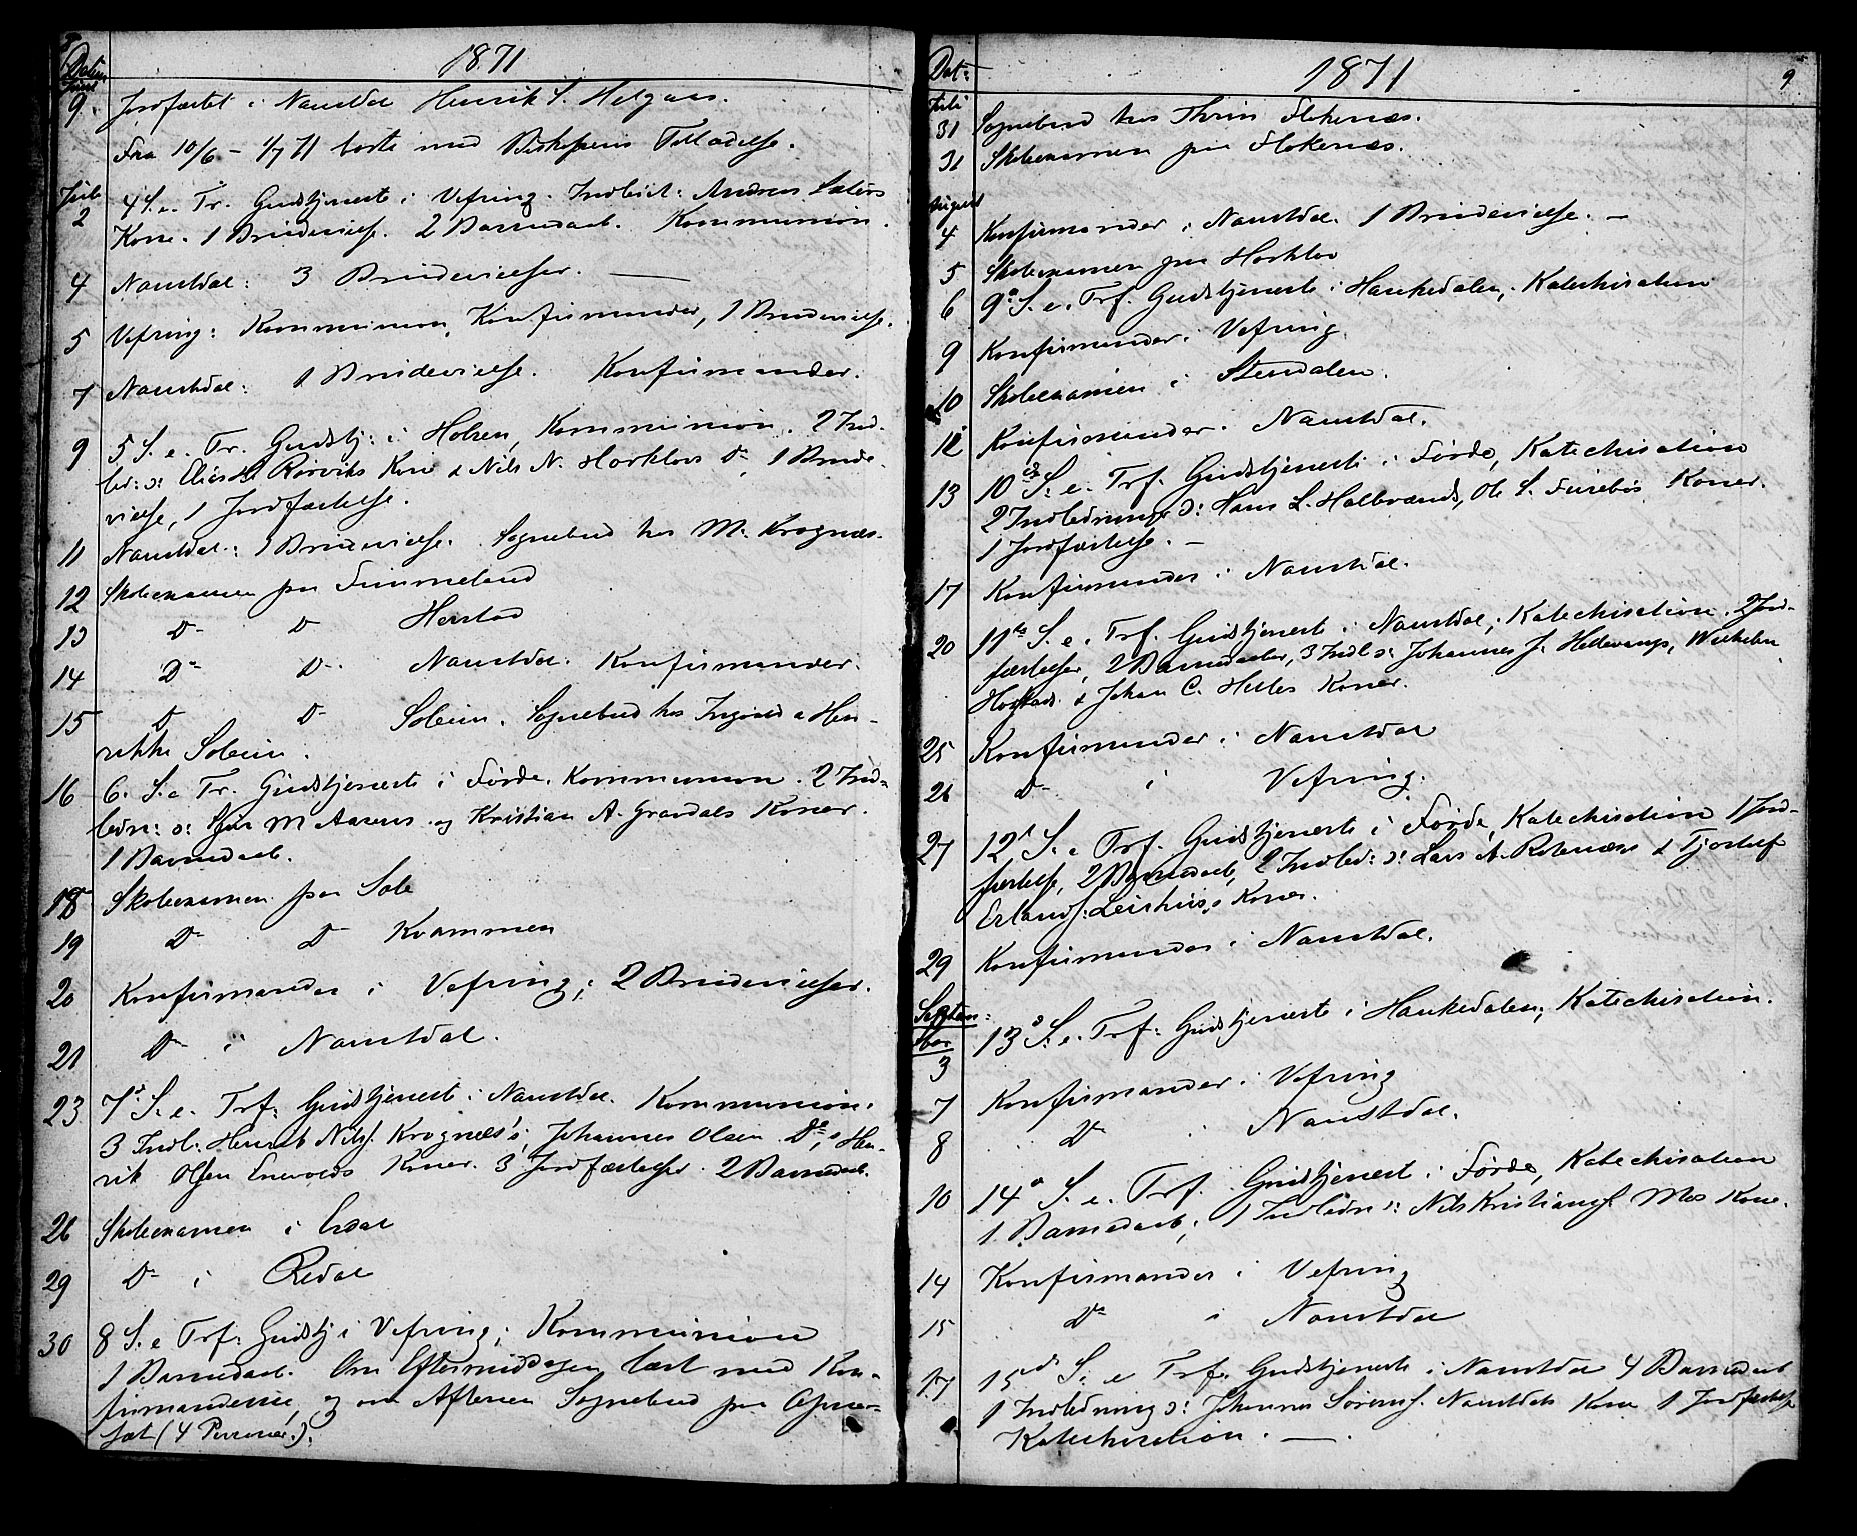 8
1871
Datum
Juni
9. Jordfæstet i Naustdal Henrik S. Helgaas.
Fra 10/6 - 1/7 71 borte med Biskopens Tilladelse.
Juli
2 4 S. e. Tr. Gudstjeneste i Vefring. Indledt: Andreas Sæters
Kone. 1 Brudevielse. 2 Barnedaab. Kommunion.
4 Naustdal: 3 Brudevielser.
5 Vefring: Kommunion, Konfirmander, 1 Brudevielse.
7 Naustdal: 1 Brudevielse. Konfirmander.
9 5 S. e. Tr. Gudstj: i Holsen, Kommunion. 2 Ind-
led: Elias Rørviks Kone & Nils N. Horklos Do, 1 Brude-
vielse, 1 Jordfæstelse.
11 Naustdal: 1 Brudevielse. Sognebud hos M. Krognæs.
12 Skoleexamen paa Fimmeland
13 Do Do Herstad
14 Do Do Naustdal. Konfirmander.
15 Do Do Soleim. Sognebud hos Ingvald & Hen-
rikke Soleim.
16 6. S. e. Tr. Gudstjeneste i Førde. Kommunion. 2 Ind-
ledn: M Aasens og Kristian A. Grandals Koner.
1 Barnedaab.
18 Skoleexamen paa Sole
19 Do Do Kvammen
20 Konfirmander i Vefring; 2 Brudevielser.
21 Do i Naustdal.
23 7de S. e. Trf: Gudstjenest i Naustdal. Kommunion.
3 Indl: Henrik Nilsf. Krognæs's, Johannes Olsen Do's, Hen-
rik Olsen Enevolds Koner. 3 Jordfæstelser. 2 Barnedaab.
26 Skoleexamen i Erdal
29 Do i Redal
30 8 S. e Trf: Gudstj i Vefring; Kommunion
1 Barnedaab. Om Eftermiddagen læst med Kon-
firmanderne, og om Aftenen Sognebud paa
sæt (4 Personer.).
Dat:
1871
9
Juli
31 Sognebud hos Thrine Flokenæs.
31 Skoleexamen paa Flokenæs.
August
4 Konfirmander i Naustdal. 1 Brudevielse. —
5 Skoleexamen paa Horklo
6 9de S. e. Trf. Gudstjeneste i Haukedalen; Katechisation
9 Konfirmander i Vefring.
10 Skoleexamen i Stendalen.
12 Konfirmander. Naustdal.
13 10de S. e. Trf. Gudstjeneste i Førde, Katechisation
2 Indledninger: Hans L. Halbrænds, Ole S. Furebøs Koner.
1 Jordfæstelse. —
17 Konfirmander i Naustdal.
20 11te S. e. Trf. Gudstjeneste i Naustdal; Katechisation. 2 Jord-
fæstelser, 2 Barnedaab, 3 Indl: Johannes J. Hellevangs,
& Johan C. Helles Koner.
25 Konfirmander i Naustdal
26 Do i Vefring.
27 12te S. e Trf. Gudstjeneste i Førde, Katechisation 1 Jord-
fæstelse, 2 Barnedaab, 2 Indled: Lars A. Rotenæs & Tjostolf
Erlandf: Leirhus's Koner.
29 Konfirmander i Naustdal.
Septem-
ber
3 13de S. e. Trf: Gudstjeneste i Haukedalen; Katechisation.
7 Konfirmander i Vefring
8 Do i Naustdal.
10 14de S. e. Trf. Gudstjenest i Førde, Katechisation
1 Barnedaab; 1 Indledn: Nils Kristiansf. Mos Kone.
14 Konfirmander i Vefring
15 Do i Naustdal
17 15de S. e Trf. Gudstjeneste i Naustdal 4 Barnedaab
1 Indledning: Johannes Sørensf. Naustdals Kone 1 Jordfæstelse
Katechisation. —